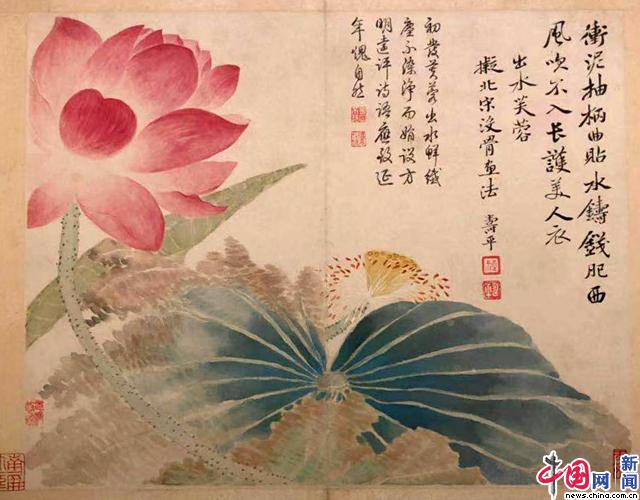 衝泥抽柄曲貼水鑄錢肥西
風吹不入長護美人衣
出水芙蓉
擬北宋沒骨畫法
壽平
初發芙蓉出水鮮纖
塵不染淨而娟設方
明遠評詩語應延
年愧自然
中国网
新闻
news.china.com.cn